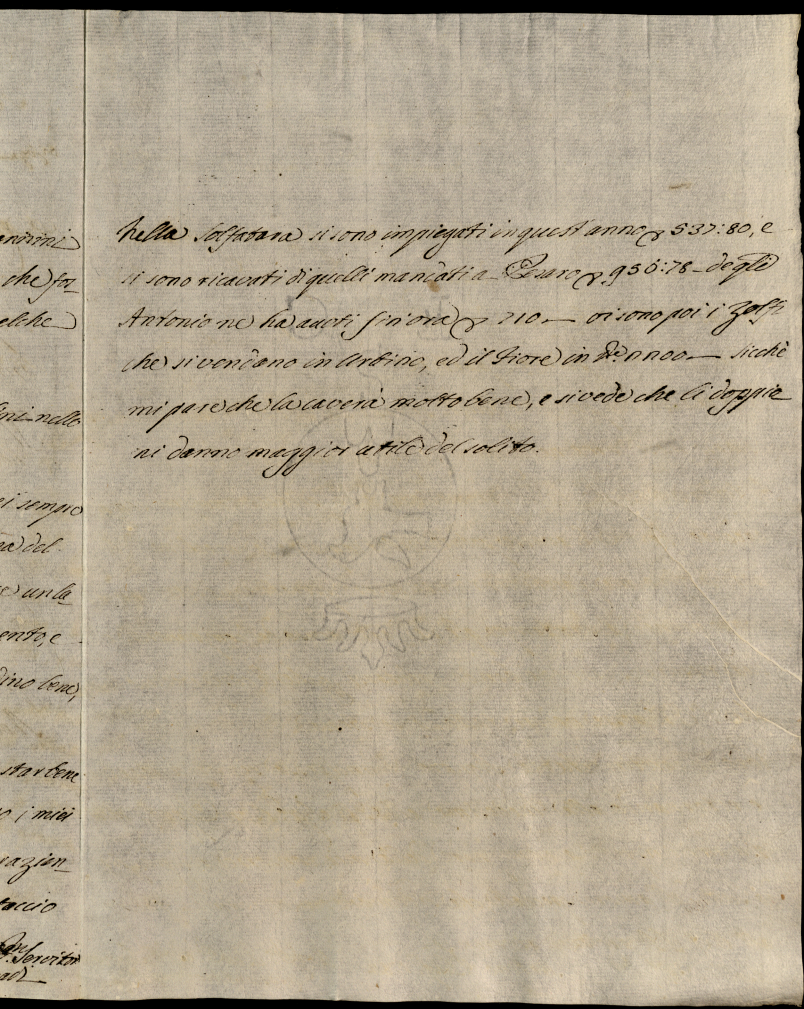 annini
che for
elche
ini nello
ei sempre
na del
e un la
ento, e
dino bene,
star bene
o i miei
razion
taccio
Servitor
Nella Solfatara si sono impiegati in quest'anno 537:80, e
si sono ricavati di quelli mandati a Pesaro 956:78 – degli
Antonio ne ha avuti fin'ora 210 — vi sono poi i zolfi
che si vendano in Urbino, ed il Fiore in — sicchè
mi pare che la caverà molto bene, e si vede che li doppie
ni danno maggior utile del solito.